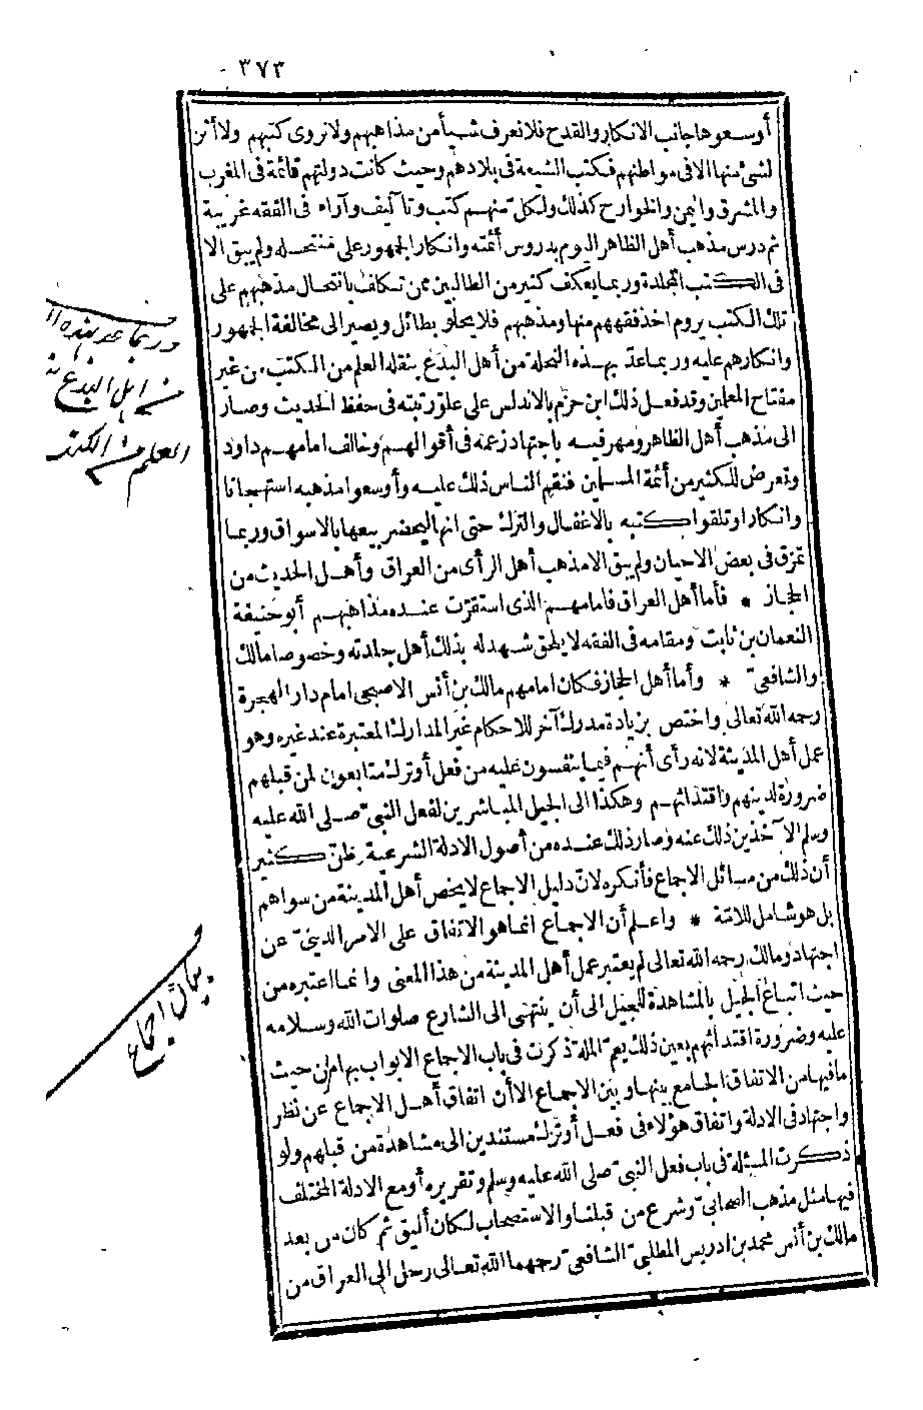 ٣٧٣
أوسعوها جانب الانكار والقدح فلا نعرف شيأ من مذاهبهم ولا نروى كتبهم ولا أثر
لشئ منها الا فى مواطنهم فكتب الشيعة فى بلادهم وحيث كانت دولتهم قائمة فى المغرب
والمشرق واليمن والخوارج كذلك ولكل منهم كتب وتآليف وآراء فى الفقه غريبة
ثم درس مذهب أهل الظاهر اليوم بدروس أئمته وانكار الجمهور على منتحله ولم يبق الا
فى الكتب المجلدة وربما يعكف كثير من الطالبين ممن تكلف بانتحال مذهبهم على
تلك الكتب يروم اخذ فقههم منها ومذهبهم فلا يحلو بطائل ويصير الى مخالفة الجمهور
وانكارهم عليه وربما عد بهذه النحلة من أهل البدع بنقله العلم من الكتب من غير
مفتاح المعلمين وقد فعل ذلك ابن حزم بالاندلس على علو رتبته فى حفظ الحديث وصار
الى مذهب أهل الظاهر ومهر فيه باجتهاد زعمه فى أقوالهم وخالف امامهم داود
وتعرض للكثير من أئمة المسلمين فنقم الناس ذلك عليه وأوسعوا مذهبه استهجانا
وانكارا وتلقوا كتبه بالاغفال والترك حتى انها ليحضر بيعها بالاسواق وربما
تمزق فى بعض الاحيان ولم يبق الا مذهب أهل الرأى من العراق وأهل الحديث من
الحجاز * فأما أهل العراق فامامهم الذى استقرت عنده مذاهبهم أبو حنيفة
النعمان بن ثابت ومقامه فى الفقه لا يلحق شهد له بذلك أهل جلدته وخصوصا مالك
والشافعى * وأما أهل الحجاز فكان امامهم مالك بن أنس الاصبحى امام دار الهجرة
رحمه الله تعالى واختص بزيادة مدرك آخر للاحكام غير المدارك المعتبرة عند غيره وهو
عمل أهل المدينة لانه رأى أنهم فيما ينفسون عليه من فعل أو ترك متابعون لمن قبلهم
ضرورة لدينهم واقتدائهم وهكذا الى الجيل المباشرين لفعل النبى صلى الله عليه
وسلم الآخذين ذلك عنه وصار ذلك عنده من أصول الادلة الشرعية وظن كثير
أن ذلك من مسائل الاجماع فأنكره لان دليل الاجماع لا يخص أهل المدينة من سواهم
بل هو شامل للامة * واعلم أن الاجماع انما هو الاتفاق على الامر الدينى عن
اجتهاد ومالك رحمه الله تعالى لم يعتبر عمل أهل المدينة من هذا المعنى وانما اعتبره من
حيث اتباع الجيل بالمشاهدة للجيل الى أن ينتهى الى الشارع صلوات الله وسلامه
عليه وضرورة اقتدائهم بعين ذلك يعم الملة ذكرت فى باب الاجماع الابواب بها من حيث
ما فيها من الاتفاق الجامع بينها وبين الاجماع الا أن اتفاق أهل الاجماع عن نظر
واجتهاد فى الادلة واتفاق هؤلاء فى فعل أو ترك مستندين الى مشاهدة من قبلهم ولو
ذكرت المسئلة فى باب فعل النبى صلى الله عليه وسلم وتقريره أو مع الادلة المختلف
فيها مثل مذهب الصحابى وشرع من قبلنا والاستصحاب لكان أليق ثم كان من بعد
مالك بن أنس محمد بن ادريس المطلبى الشافعى رحمهما الله تعالى رحل الى العراق من
وربما عد بهذه
من اهل البدع
العلم من الكتب
بيان اجماع